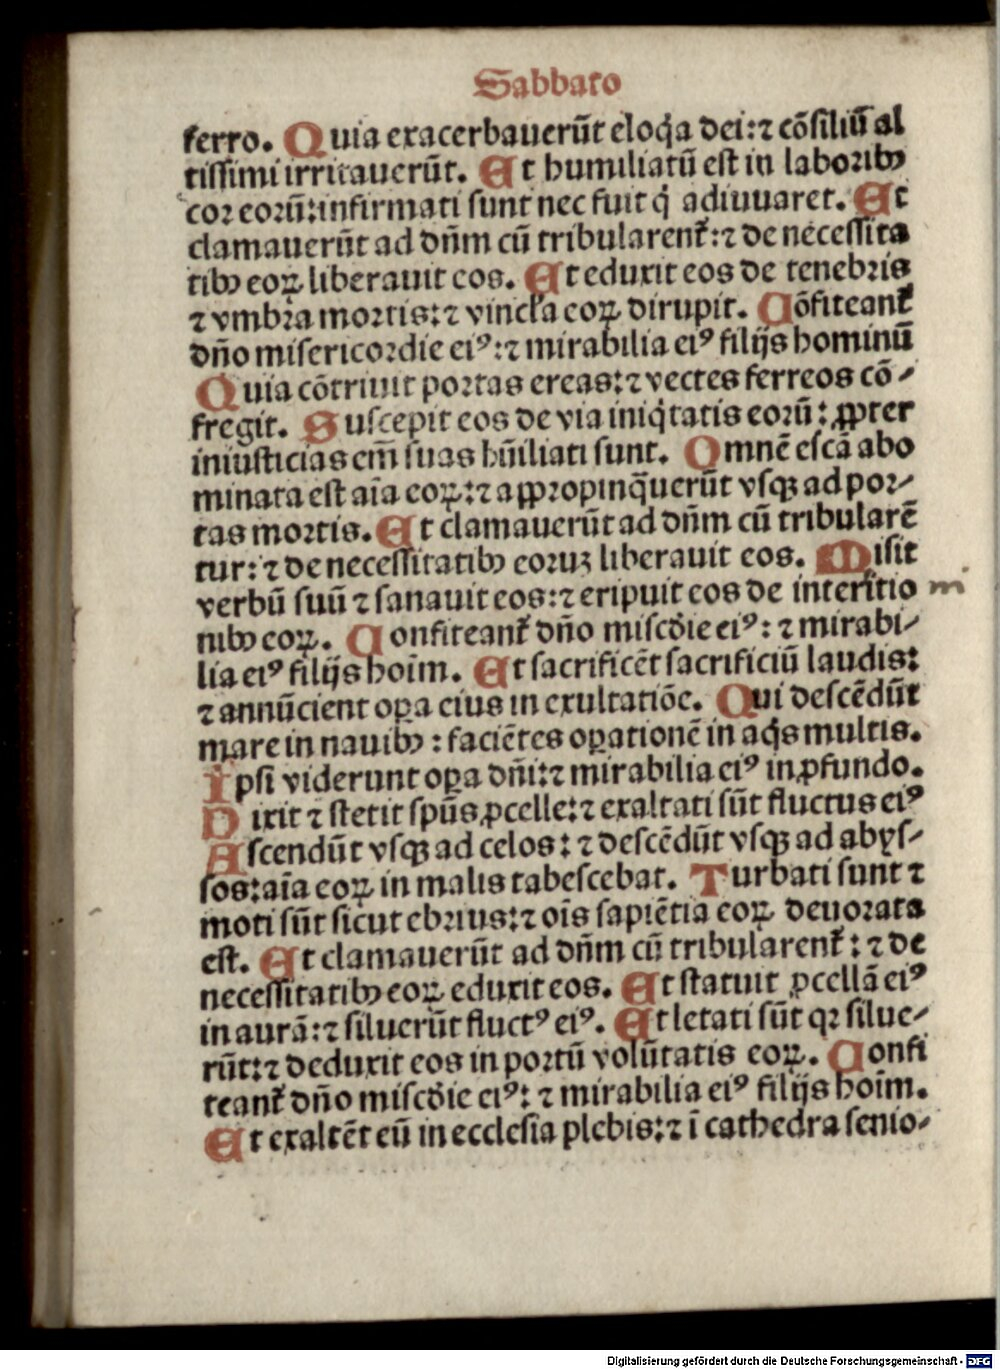 Sabbato
ferro. Quia exacerbauerūt eloq̄a dei:⁊ cōsiliū al
tissimi irritauerūt. Et humiliatū est in laboribꝰ
cor eorū:infirmati sunt nec fuit q̄ adiuuaret. Et
clamauerūt ad dn̄m cū tribularent᷑:⁊ de necessita
tibꝫ eoꝝ liberauit eos. Et eduxit eos de tenebris
⁊ vmbra mortis:⁊ vincl'a eoꝝ dirupit. Cōfiteant᷑
dn̄o misericordie eiꝰ:⁊ mirabilia eiꝰ filijs hominū
Quia cōtriuit portas ereas:⁊ vectes ferreos cō⸗
fregit. Suscepit eos de via iniq̇tatis eorū: ꝓpter
iniusticias em̄ suas hūiliati sunt. Omnē escā abo
minata est aīa eoꝝ:⁊ aꝓpropinq̄uerūt vsqꝫ ad por⸗
tas mortis. Et clamauerūt ad dn̄m cū tribularē
tur:⁊ de necessitatibꝫ eoruꝫ liberauit eos. Misit
verbū suū ⁊ sanauit eos:⁊ eripuit eos de interitio m̄
nibꝫ eoꝝ. Confiteant᷑ dn̄o misc̄die eiꝰ: ⁊ mirabi⸗
lia eiꝰ filijs hoīm. Et sacrificēt sacrificiū laudis:
⁊ annūcient oꝑa eius in exultatiōe. Qui descēdūt
mare in nauibꝫ : faciētes oꝑationē in aq̇s multis.
Ipsi viderunt oꝑa dn̄i:⁊ mirabilia eiꝰ in ꝓfundo.
Dixit ⁊ stetit spūs ꝓcelle:⁊ exaltati sūt fluctus eiꝰ
Ascendūt vsqꝫ ad celos:⁊ descēdūt vsqꝫ ad abys⸗
sos:aīa eoꝝ in malis tabescebat. Turbati sunt ⁊
moti sūt sicut ebrius:⁊ oīs sapiētia eoꝝ deuorata
est. Et clamauerūt ad dn̄m cū tribularent᷑:⁊ de
necessitatibꝫ eoꝝ eduxit eos. Et statuit ꝓcellā eiꝰ
in aurā:⁊ siluerūt fluctꝰ eiꝰ. Et letati sūt qꝛ silue⸗
rūt:⁊ deduxit eos in portū volūtatis eoꝝ. Confi
teant᷑ dn̄o misc̄die eiꝰ: ⁊ mirabilia eiꝰ filijs hoīm.
Et exaltēt eū in ecclesia plebis:⁊ ī cathedra senio⸗
Digitalisierung gefördert durch die Deutsche Forschungsgemeinschaft - DFG